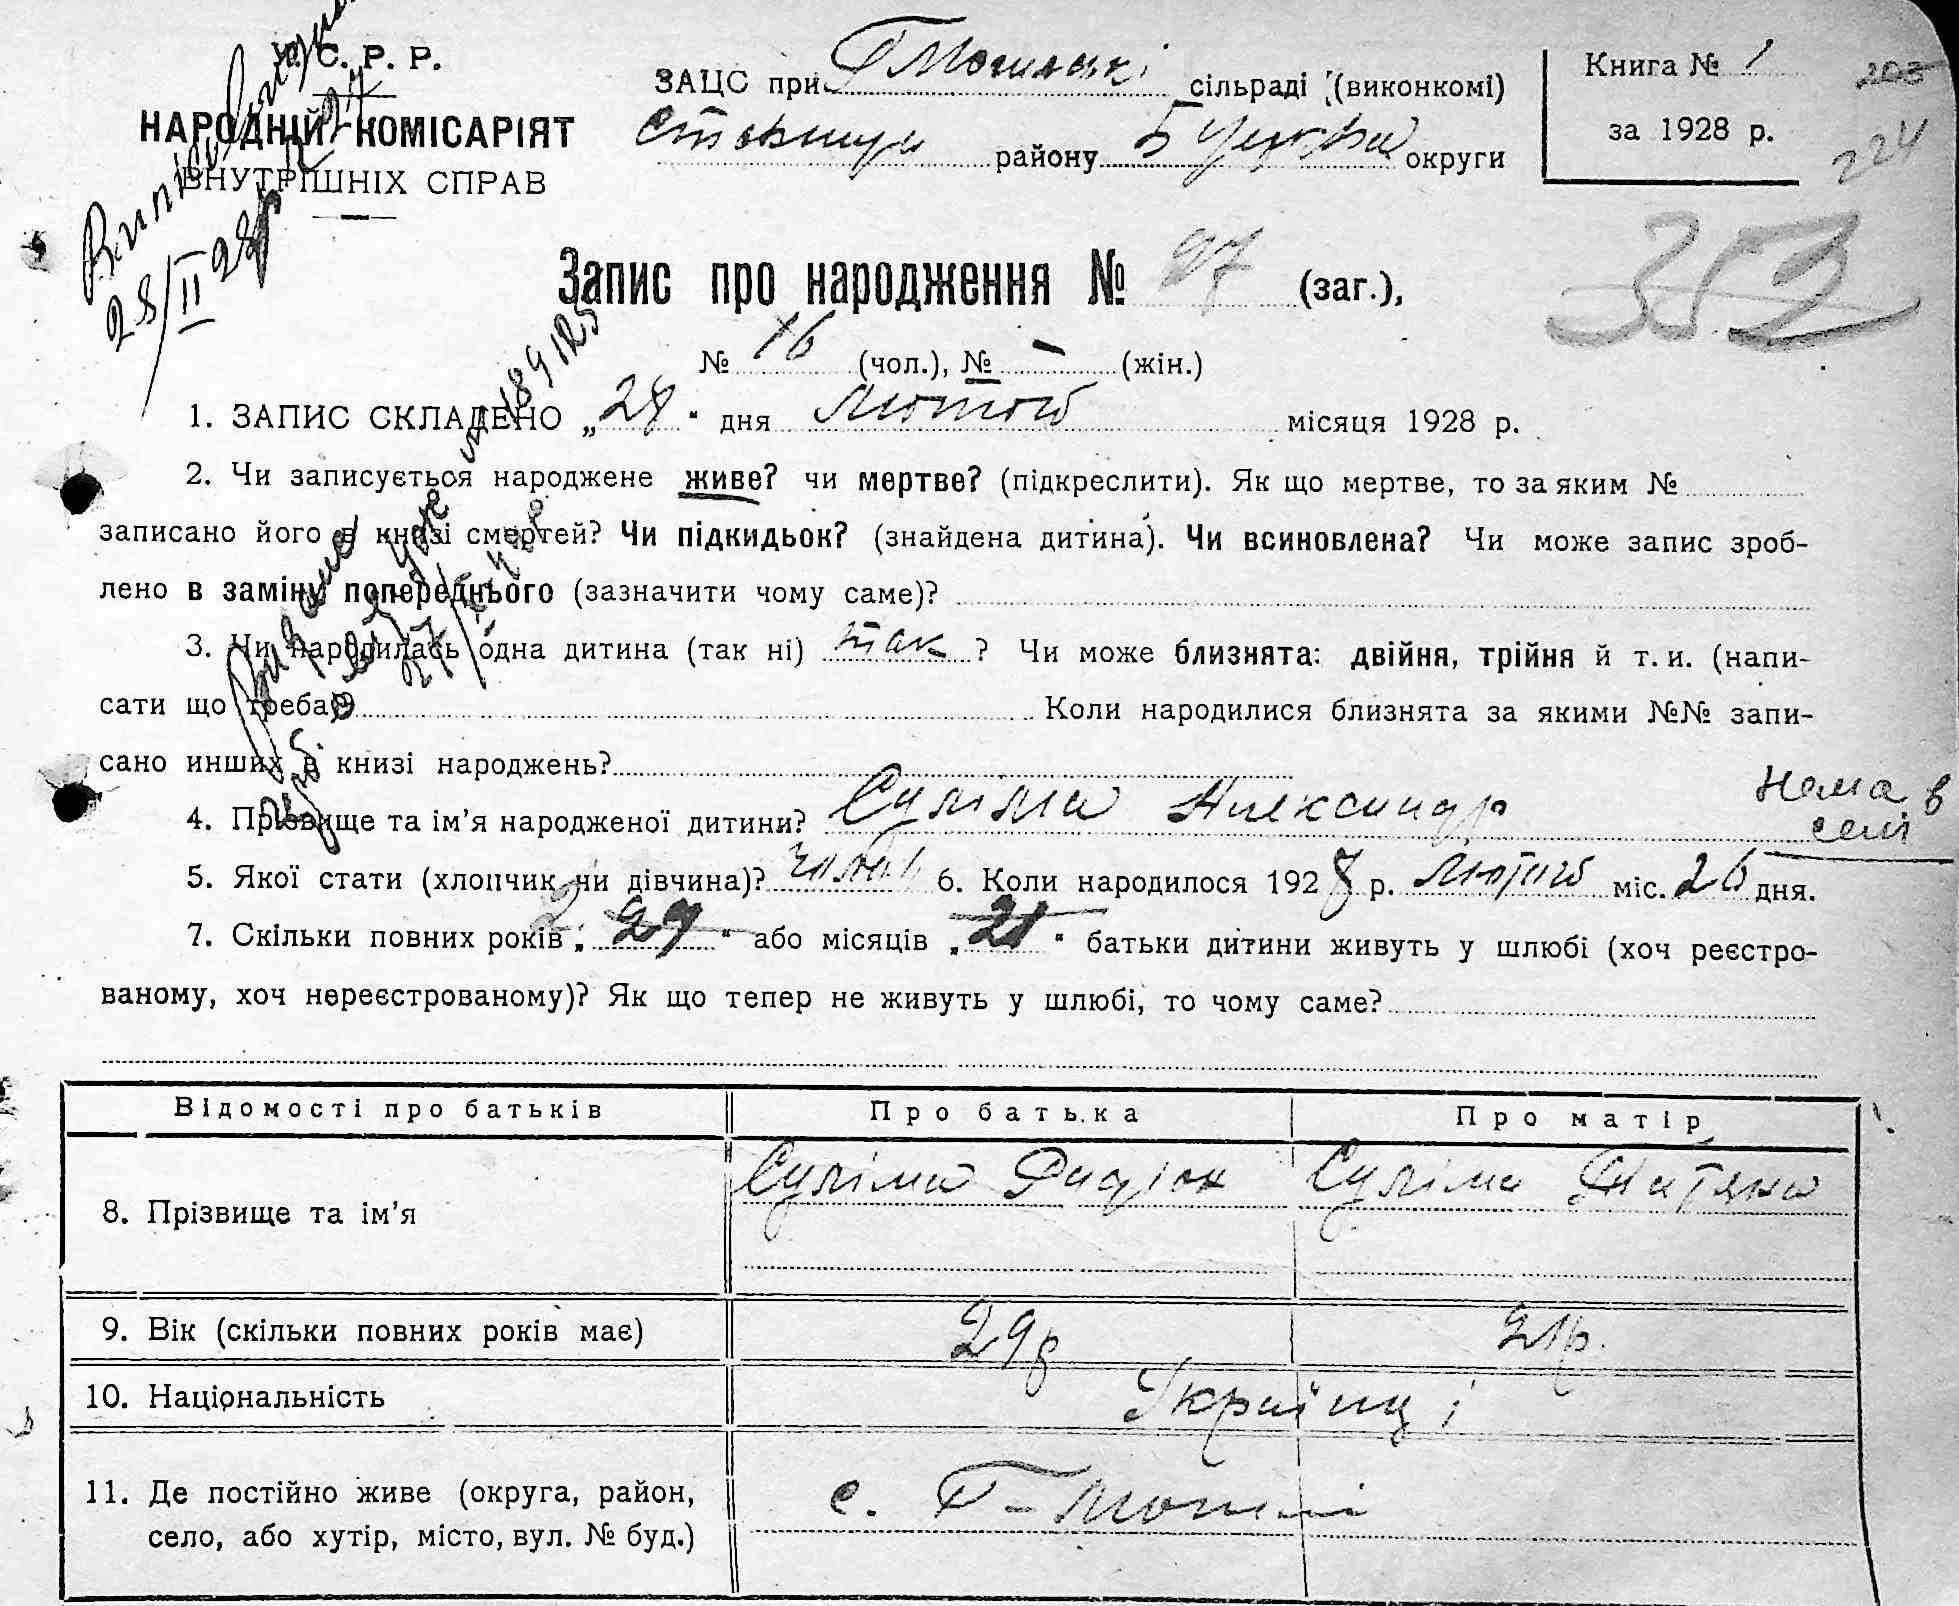 С. Р. Р.
НАРОДНІЙ КОМІСАРІЯТ
ВНУТРІШНІХ СПРАВ
ЗАЦС при сільраді (виконкомі)
району Б Церкви округи
Книга № 1
за 1928 р.
203
224
28/II 28
352
Запис про народження № 27 (заг.),
№ 16 (чол.), № – (жін.)
1. ЗАПИС СКЛАДЕНО „28“ дня Лютого місяця 1928 р.
2. Чи записується народжене живе? чи мертве? (підкреслити). Як що мертве, то за яким №
записано його в книзі смертей? Чи підкидьок? (знайдена дитина). Чи всиновлена? Чи може запис зроб-
лено в заміну попереднього (зазначити чому саме)?
3. Чи народилась одна дитина (так ні) так ? Чи може близнята: двійня, трійня й т. и. (напи-
сати що треба)? Коли народилися близнята за якими №№ запи-
сано инших в книзі народжень?
4. Прізвище та ім’я народженої дитини? Суліма Александр
Нема в
селі
5. Якої стати (хлопчик чи дівчина)? 6. Коли народилося 1928 р. Лютого міс. 26 дня.
7. Скільки повних років „29“ або місяців „21“ батьки дитини живуть у шлюбі (хоч реєстро-
ваному, хоч нереєстрованому)? Як що тепер не живуть у шлюбі, то чому саме?
Відомості про батьків Про батька Про матір
8. Прізвище та ім’я Суліма Суліма Татяна
9. Вік (скільки повних років має) 29р 21р.
10. Національність Українці
11. Де постійно живе (округа, район,
село, або хутір, місто, вул. № буд.) с. Г-Могилі